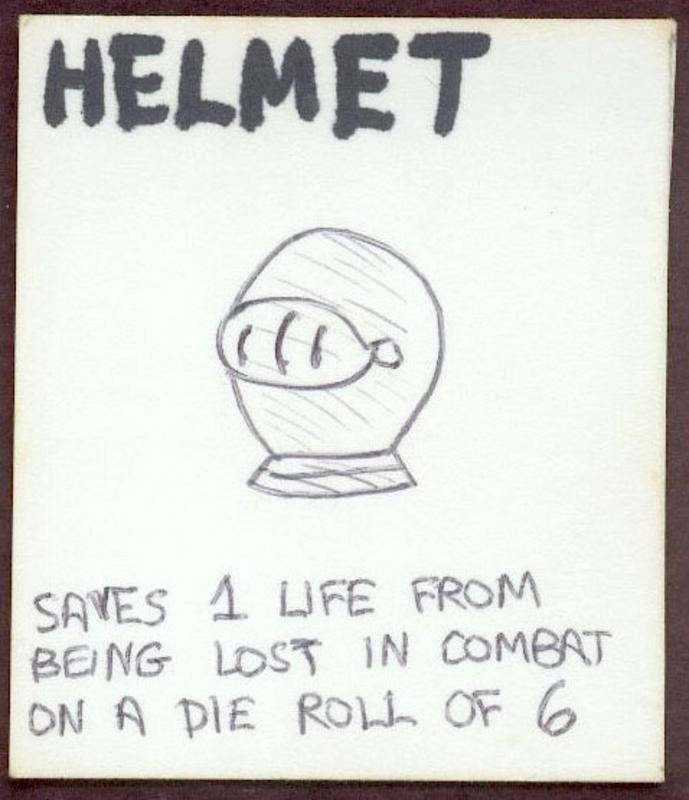 HELMET
SAVES 1 LIFE FROM
BEING LOST IN COMBAT
ON A DIE ROLL OF 6